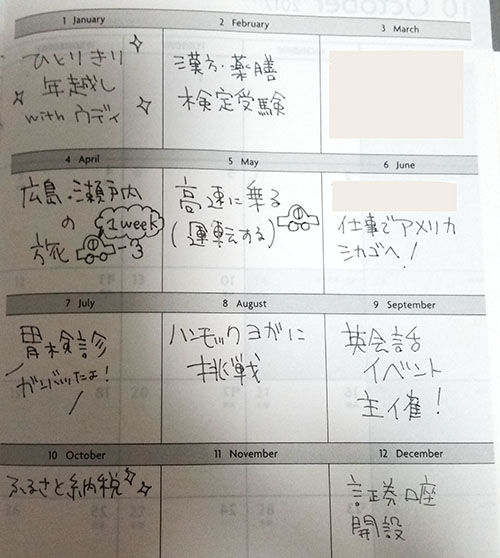 10 October 2017
1 January
ひとりきり
年越し
with ウディ
2 February
漢方・薬膳
検定受験
3 March
4 April
広島・瀬戸内
の
旅
1 week
5 May
高速に乗る
(運転する)
6 June
仕事でアメリカ
シカゴへ!
7 July
胃検診
ガンバッたよ!
8 August
ハンモックヨガに
挑戦
9 September
英会話
イベント
主催!
10 October
ふるさと納税
11 November
12 December
証券口座
開設